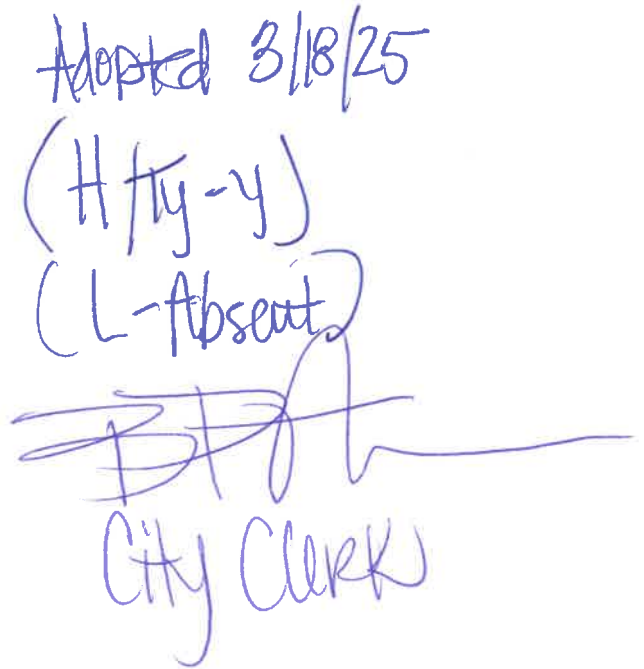 Adopted 3/18/25
(H Hy-y)
(L-Absent)
City Clerk